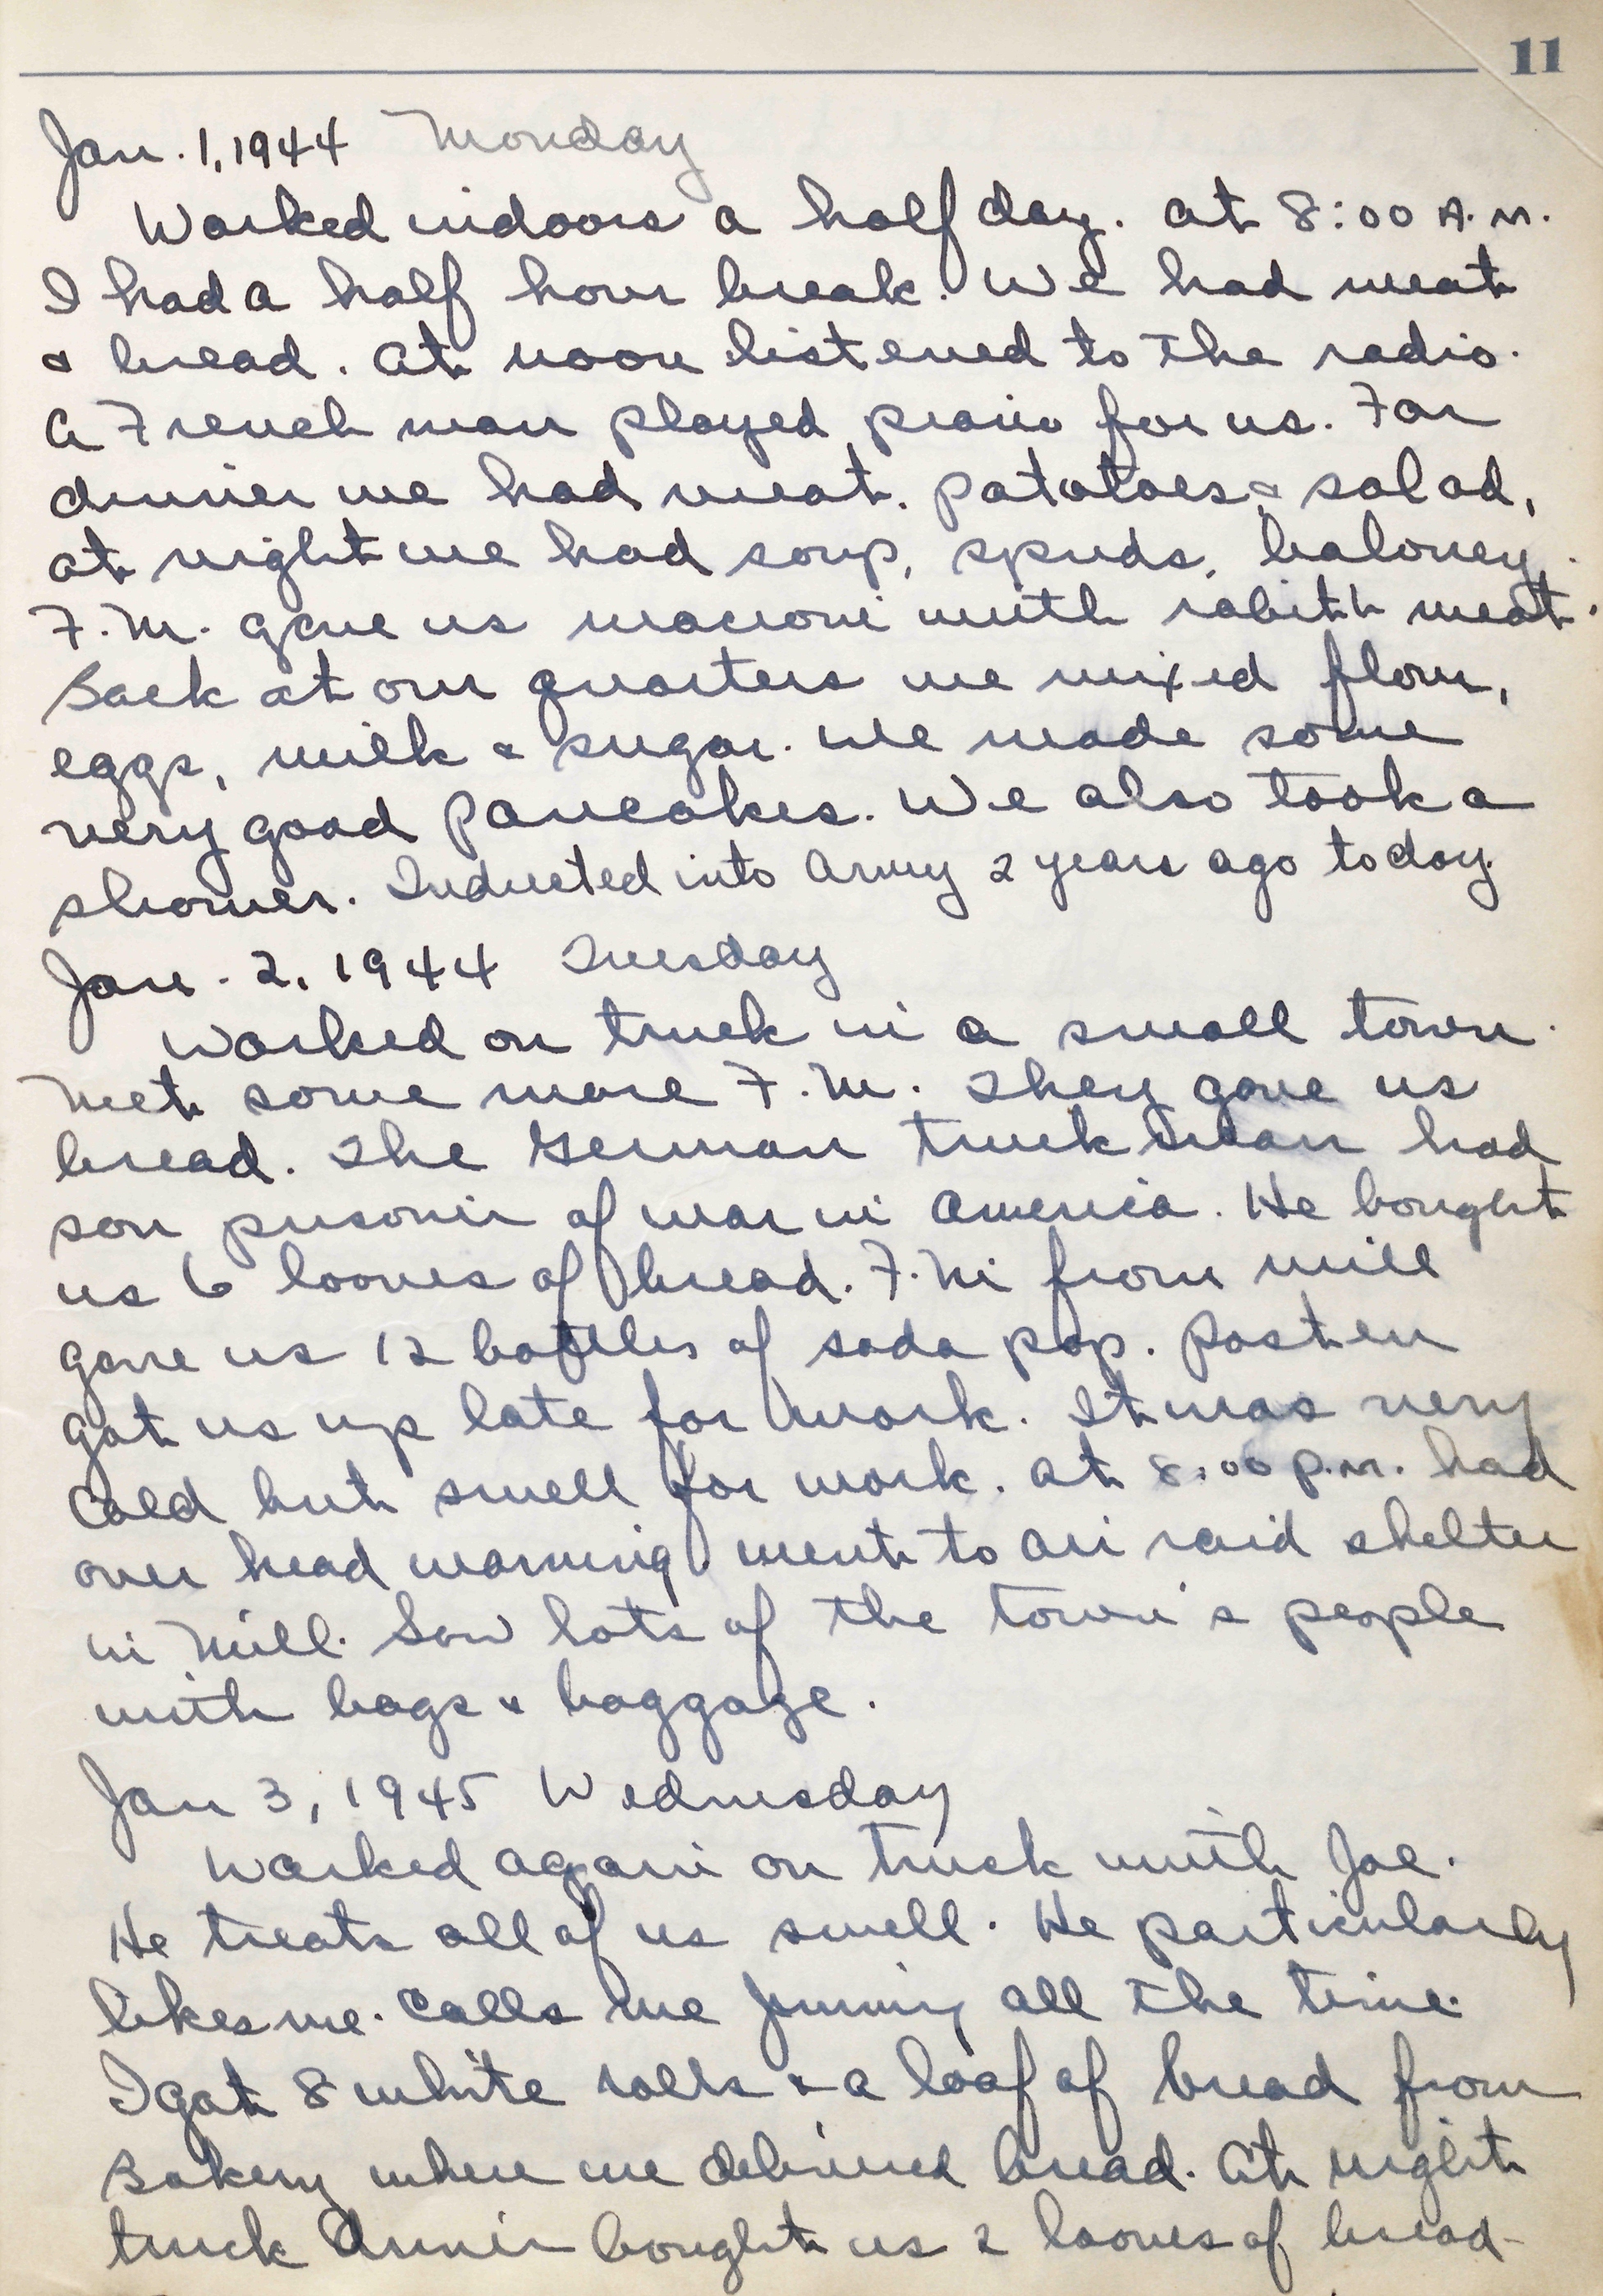 11
Jan. 1, 1944 Monday
Worked indoors a half day. at 8:00 A.M.
I had a half hour break. We had meat
& bread. At noon listened to the radio.
A French man played piano for us. For
dinner we had meat, patatoes & salad,
at night we had soup, spuds, baloney.
F.M. gave us macroni with rabitt meat.
Back at our quarters we mixed flour,
eggs, milk & sugar. We made some
very good pancakes. We also took a
shower. Inducted into Army 2 years ago today.
Jan. 2, 1944 Tuesday
Worked on truck in a small town.
Met some more F.M. They gave us
bread. The German truck man had
son prisonir of war in America. He bought
us 6 loaves of bread. F.M. from mill
gave us 12 bottles of soda pop. Posten
got us up late for work. It was very
cold but swell for work. At 8:00 p.m. had
over head warning. went to air raid shelter
in Mill. Saw lots of the town's people
with bags & baggage.
Jan 3, 1945 Wednesday
Worked again on truck with Joe.
He treats all of us swell. He particularly
likes me. Calls me Jimmy all the time.
I got 8 white rolls & a loaf of bread from
Bakery where we delivered bread. At night
truck bought us 2 loaves of bread